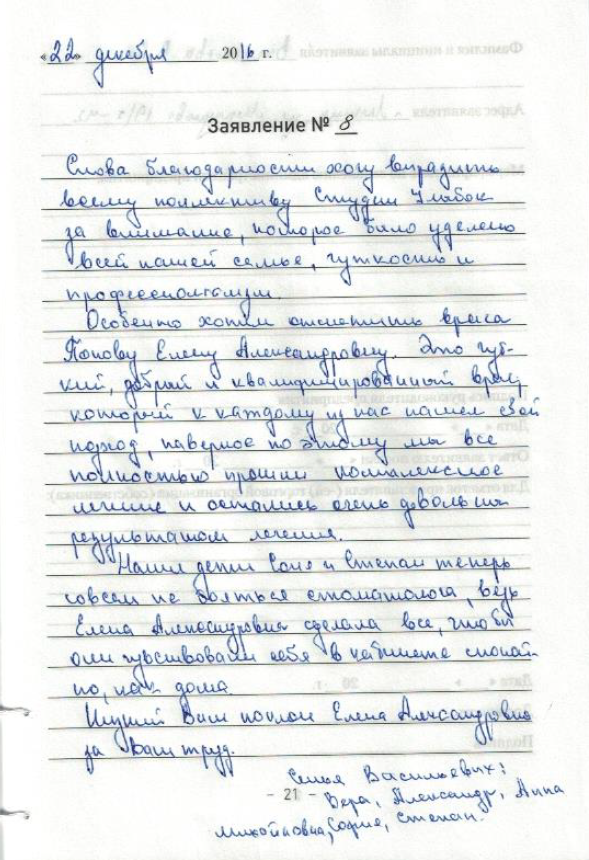 «22» декабря 2016 г.
Заявление № 8
Слова благодарности хочу выразить
всему коллективу Студии Улыбок
за внимание, которое было уделено
всей нашей семье, чуткость и
профессионализм.
Особенно хотим отметить врача
Попову Елену Александровну. Это чут-
кий, добрый и квалифицированный врач,
который к каждому из нас нашел свой
подход, наверное по этому мы все
полностью прошли комплексное
лечение и остались очень довольны
результатом лечения.
Наши дети Соня и Степан теперь
совсем не бояться стоматолога, ведь
Елена Александровна сделала все, чтобы
они чувствовали себя в кабинете спокой-
но, как дома
Низкий Вам поклон Елена Александровна
за Ваш труд.
Семья Васильевых:
- 21 - Вера, Александр, Анна
Михайловна, София, Степан.